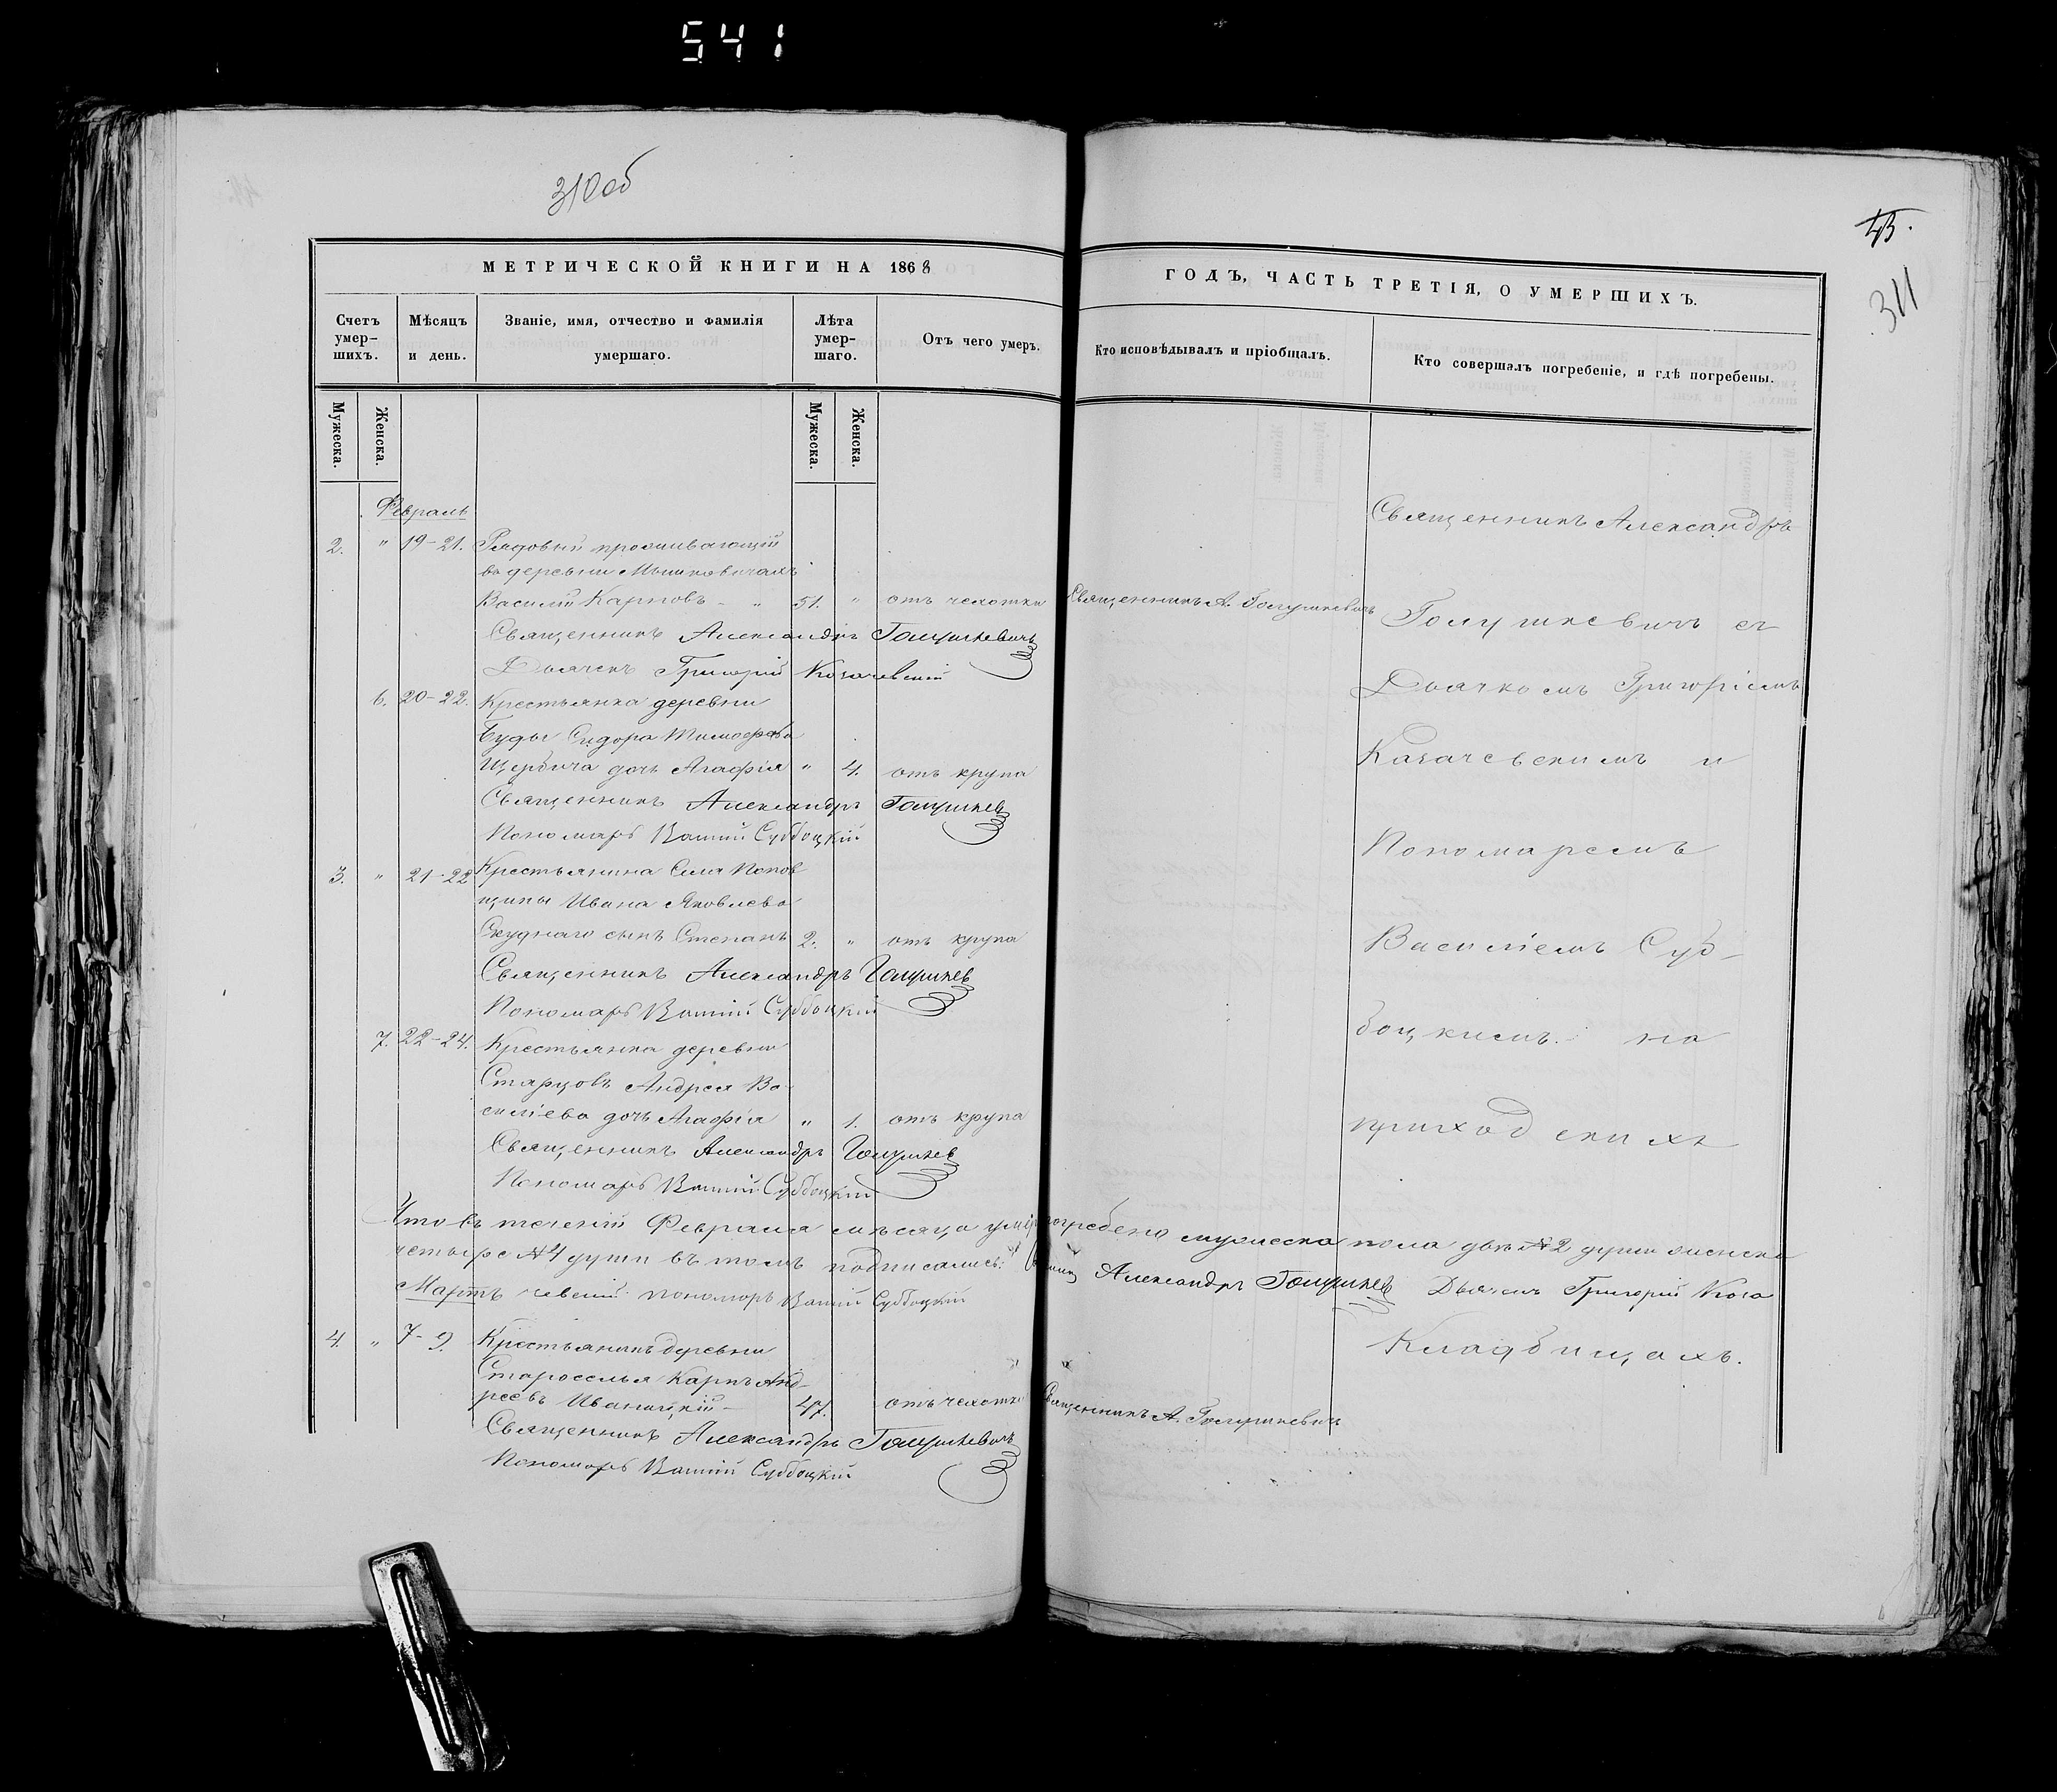 541
310об
43.
311
МЕТРИЧЕСКОЙ КНИГИ НА 1868
ГОДЪ, ЧАСТЬ ТРЕТІЯ, О УМЕРШИХЪ.
Счетъ умер-шихъ.
Мѣсяцъ и день.
Званіе, имя, отчество и фамилія умершаго.
Лѣта умер-шаго.
Отъ чего умеръ.
Кто исповѣдывалъ и пріобщалъ.
Кто совершалъ погребеніе, и гдѣ погребены.
Мужеска. Женска.
Мужеска. Женска.
Февраль
2. " 19-21. Рядовый проживающій
въ деревни Мышковичахъ
Василій Карповъ - " 51. " отъ чахотки Священникъ А. Голушкевичъ
Священникъ Александръ Голушкевичъ
Дьячекъ Григорій Козачевскій
6. 20-22. Крестьянка деревни
Буды Сидора Тимофѣева
Щербича дочь Агафія " 4. отъ крупа
Священникъ Александръ Голушкев
Пономарь Василій Субботцкій
3. " 21-22 Крестьянина Села Попов
щины Ивана Яковлева
Скуднаго сынъ Степанъ 2. " отъ крупа
Священникъ Александръ Голушкев
Пономарь Василій Субботцкій
7. 22-24. Крестьянка деревни
Старцовъ Андрея Ва-
силіева дочь Агафія " 1. отъ крупа
Священникъ Александръ Голушкев
Пономарь Василій Субботцкій
Что въ теченіи Февраля мѣсяца погребено мужеска пола двѣ №2 души женска
четыре №4 души въ томъ подписались: Александръ Голушкев Дьячекъ Григорій Коза
чевскій пономарь Василій Субботцкій
Мартъ
4. " 7-9. Крестьянинъ деревни
Староселья Карпъ Анд-
реевъ Иваницкій - 47. отъ чахотки Священникъ А. Голушкевичъ
Священникъ Александръ Голушкевичъ
Пономарь Василій Субботцкій
Священникъ Александръ
Голушкевичъ съ
Дьячкомъ Григоріемъ
Казачевскимъ и
Пономаремъ
Василіемъ Суб-
боцкимъ. на
приходскихъ
Кладбищахъ.